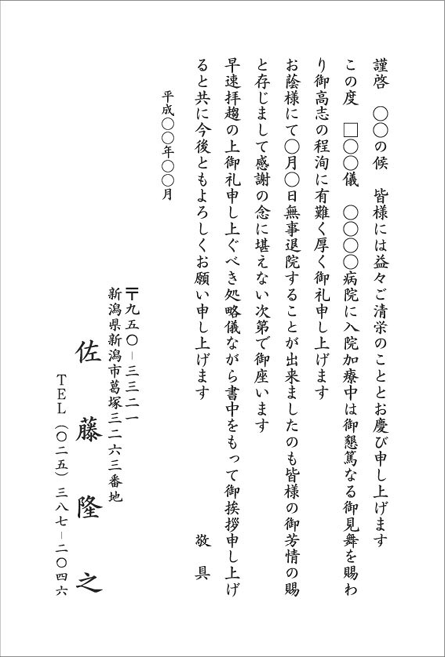 謹啓　〇〇の候　皆様には益々ご清栄のこととお慶び申し上げます
この度　□〇〇儀　〇〇〇〇病院に入院加療中は御懇篤なる御見舞を賜わ
り御高志の程洵に有難く厚く御礼申し上げます
お蔭様にて〇月〇日無事退院することが出来ましたのも皆様の御芳情の賜
と存じまして感謝の念に堪えない次第で御座います
早速拝趨の上御礼申し上ぐべき処略儀ながら書中をもって御挨拶申し上げ
ると共に今後ともよろしくお願い申し上げます　　　　　敬　具
平成〇〇年〇〇月
〒九五〇－三三二一
新潟県新潟市葛塚三二六三番地
佐　藤　隆　之
ＴＥＬ（〇二五）三八七－二〇四六